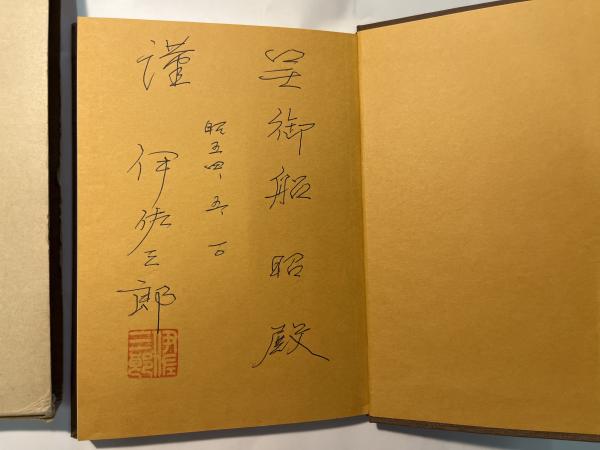 呈御船昭殿
昭五四、五、一〇
謹
伊佐三郎
伊佐三郎